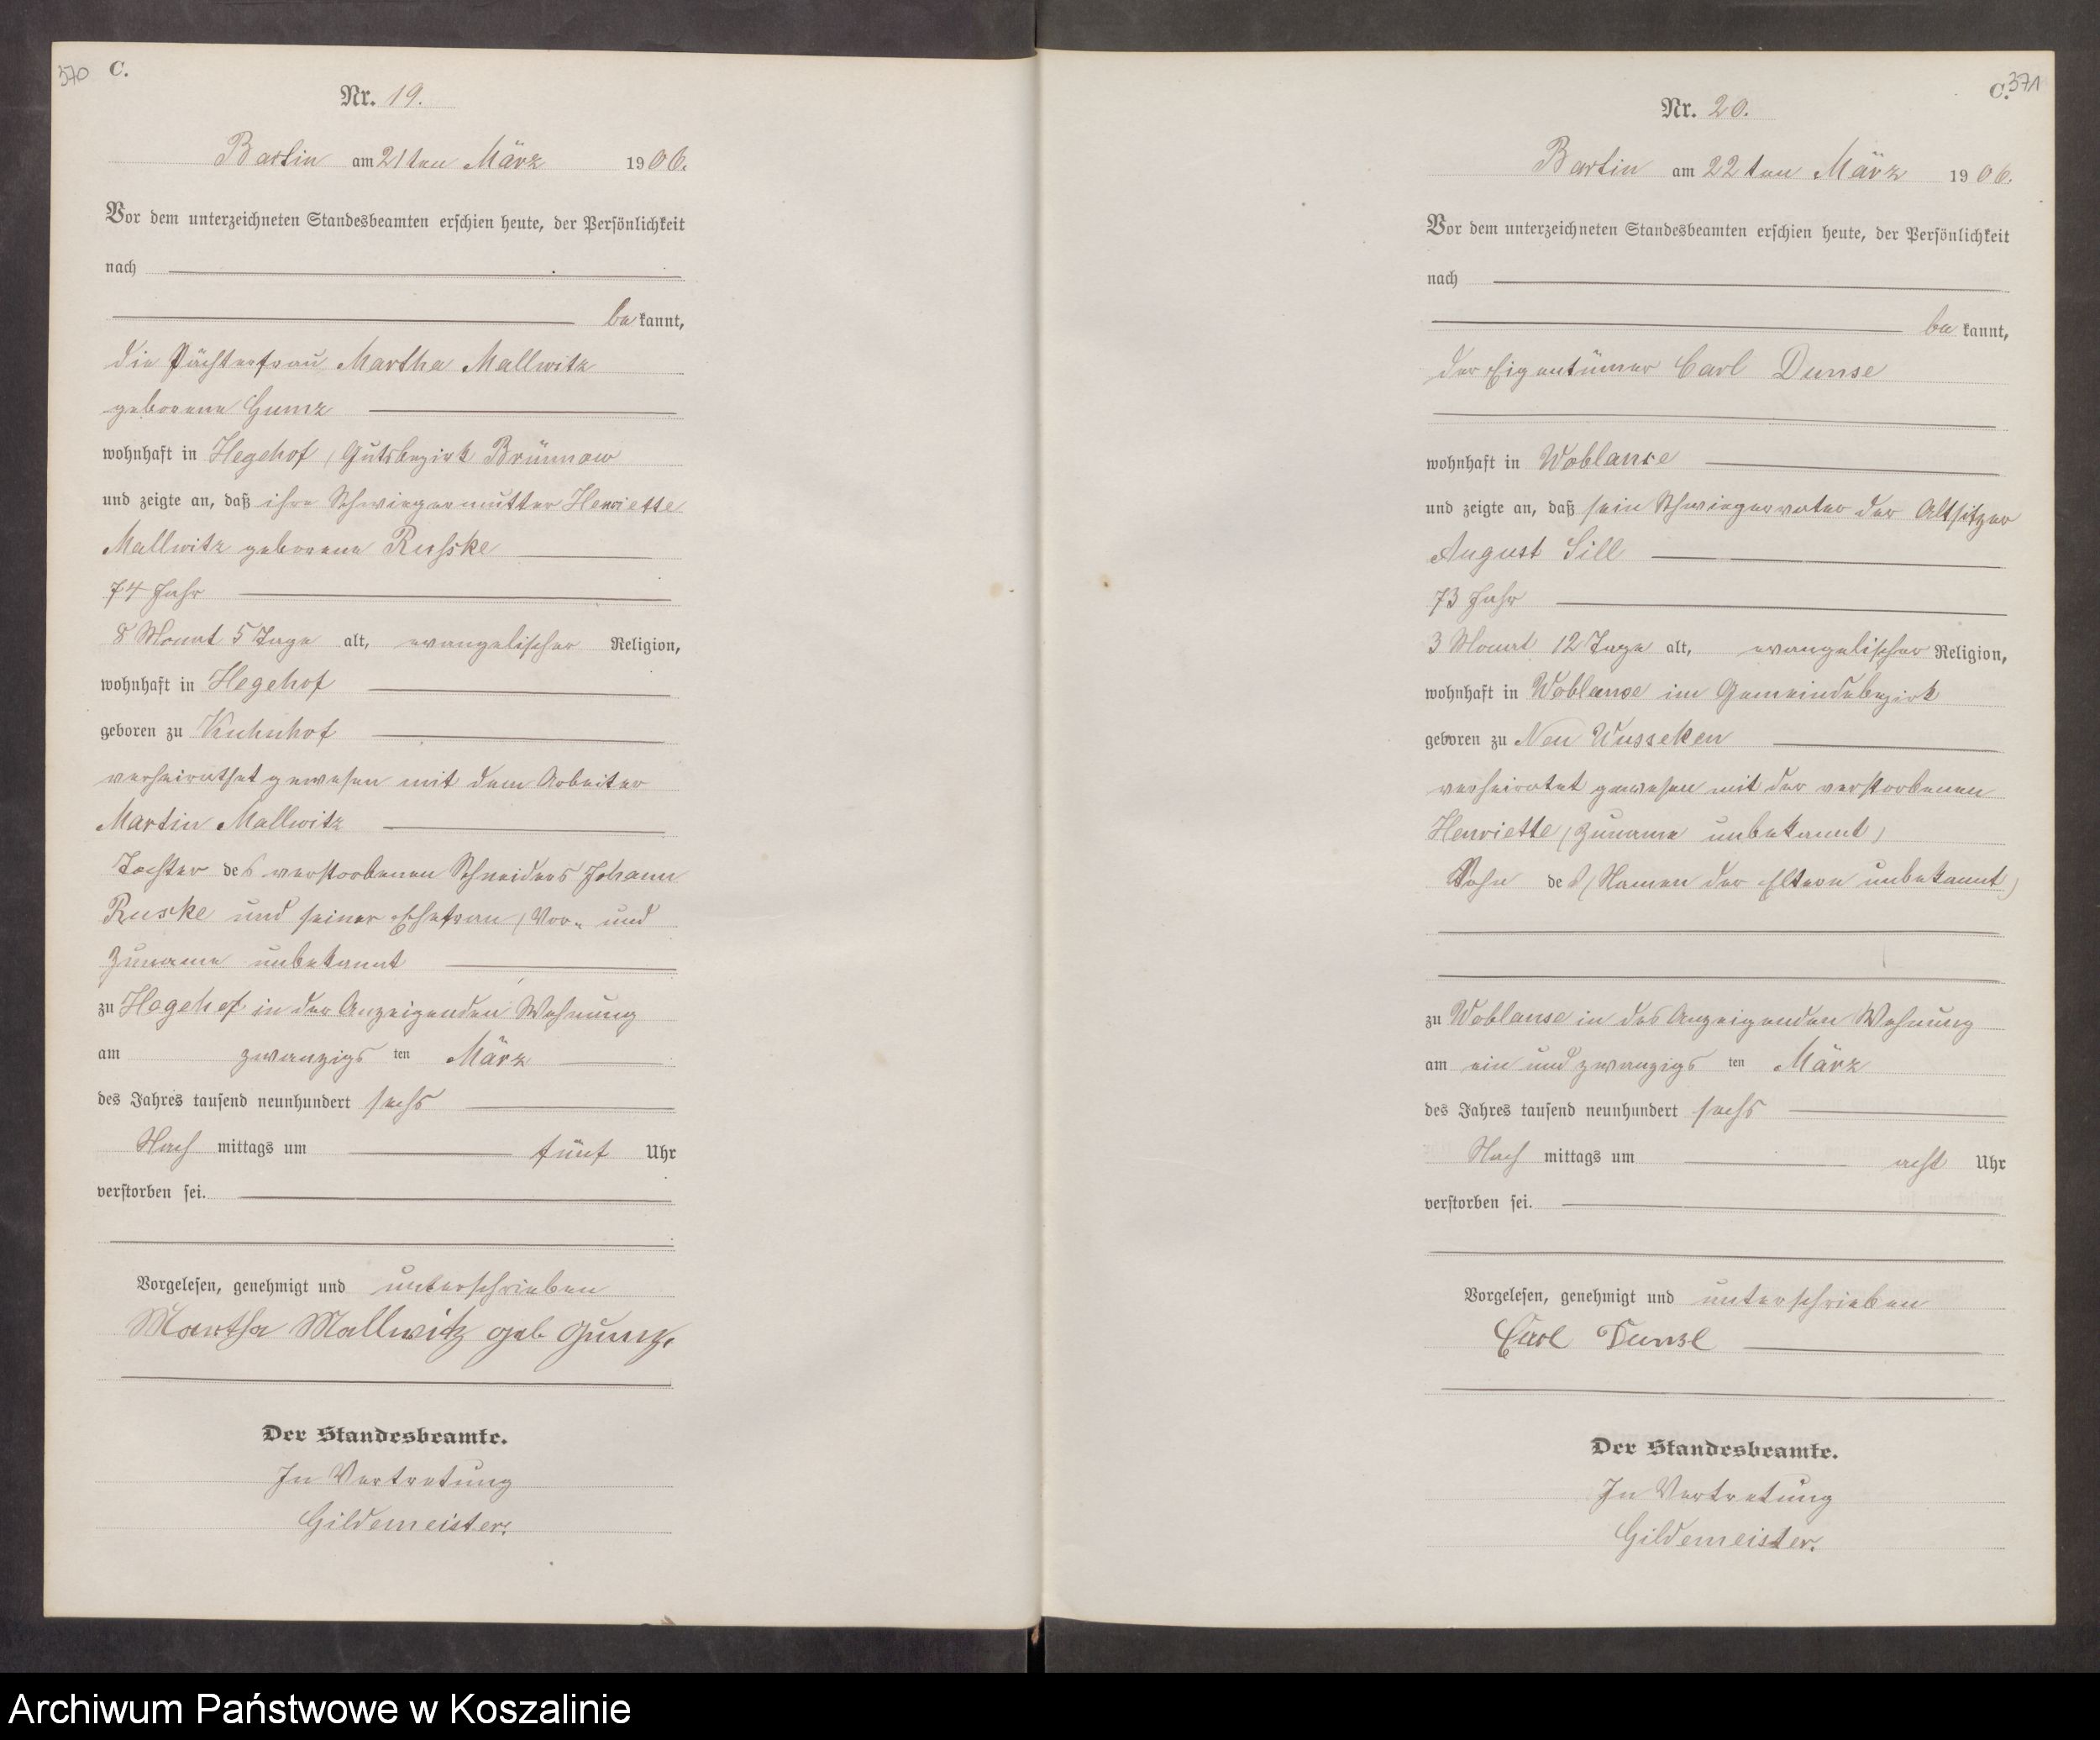 370 C.
Nr. 19.
Bartin am 21ten März 1906.
Vor dem unterzeichneten Standesbeamten erschien heute, der Persönlichkeit
nach
bekannt,
die Pächterfrau Martha Mallwitz
geborene Gumz
wohnhaft in Hegehof, Gutsbezirk Brünnow
und zeigte an, daß ihre Schwiegermutter Henriette
Mallwitz geborene Rußke
74 Jahr
8 Monat 5 Tage alt, evangelischer Religion,
wohnhaft in Hegehof
geboren zu Kuhnhof
verheirathet gewesen mit dem Arbeiter
Martin Mallwitz
Tochter des verstorbenen Schneiders Johann
Ruske und seiner Ehefrau (Vor- und
Zuname unbekannt
zu Hegehof in der Anzeigenden Wohnung
am zwanzigsten März
des Jahres tausend neunhundert sechs
Nach mittags um fünf Uhr
verstorben sei.
Vorgelesen, genehmigt und unterschrieben
Martha Mallwitz geb. Gumz.
Der Standesbeamte.
In Vertretung
Gildemeister.
C. 371
Nr. 20.
Bartin am 22ten März 1906.
Vor dem unterzeichneten Standesbeamten erschien heute, der Persönlichkeit
nach
bekannt,
der Eigentümer Carl Dunse
wohnhaft in Woblanse
und zeigte an, daß sein Schwiegervater der Altsitzer
August Sill
73 Jahr
3 Monat 12 Tage alt, evangelischer Religion,
wohnhaft in Woblanse im Gemeindebezirk
geboren zu Neu Wusseken
verheiratet gewesen mit der verstorbenen
Henriette (Zuname unbekannt)
Sohn des (Namen der Eltern unbekannt)
zu Woblanse in des Anzeigenden Wohnung
am ein und zwanzigsten März
des Jahres tausend neunhundert sechs
Nach mittags um acht Uhr
verstorben sei.
Vorgelesen, genehmigt und unterschrieben
Carl Dunse
Der Standesbeamte.
In Vertretung
Gildemeister.
Archiwum Państwowe w Koszalinie